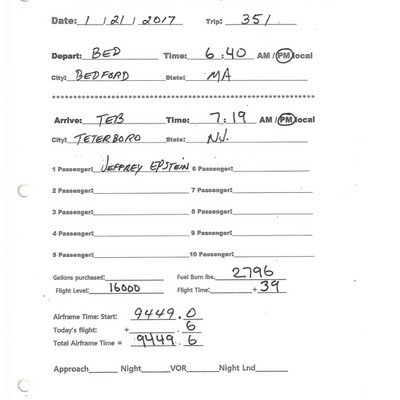 Date: 1 / 21 / 2017 Trip: 351
Depart: BED Time: 6:40 AM / PM local
City: BEDFORD State: MA
Arrive: TEB Time: 7:19 AM / PM local
City: TETERBORO State: NJ.
1 Passenger: JEFFREY EPSTEIN 6 Passenger:
2 Passenger: 7 Passenger:
3 Passenger: 8 Passenger:
4 Passenger: 9 Passenger:
5 Passenger: 10 Passenger:
Gallons purchased: Fuel Burn lbs. 2796
Flight Level: 16000 Flight Time: +39
Airframe Time: Start: 9449.0
Today's flight: + .6
Total Airframe Time = 9449.6
Approach Night VOR Night Lnd